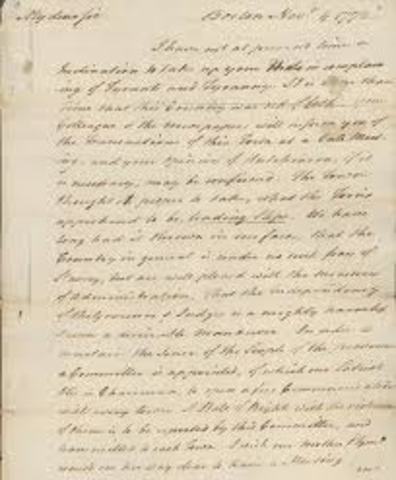 My dear Sir Boston Novr 4 1772
I have not at present time or
Inclination to take up your in complain
ing of Tyrants and Tyranny. It is more than
time that this Country was rid of both. your
Colleague & the News papers will inform you of
the Transactions of this Town at a late Meet
ing, and your opinion of Hutchinson, if it
is necessary, may be confirmed. The Town
thought it proper to take, what the Tories
apprehend to be, leading Steps. We have
long had it thrown in our face, that the
Country in general is under no such fears of
Slavery, but are well pleased with the Measures
of Administration, that the independency
of the Governor & Judges is a mighty harmless
& even a desirable Manoeuvre. In order to
ascertain the Sense of the People of the Province
a Committee is appointed, of which our Patriot
Otis is Chairman, to open a free Communication
with every Town. A State of Right with the violations
of them is to be reported by this Committee, and
transmitted to each Town. I wish our Mother Plymo
would see her way clear to have a Meeting